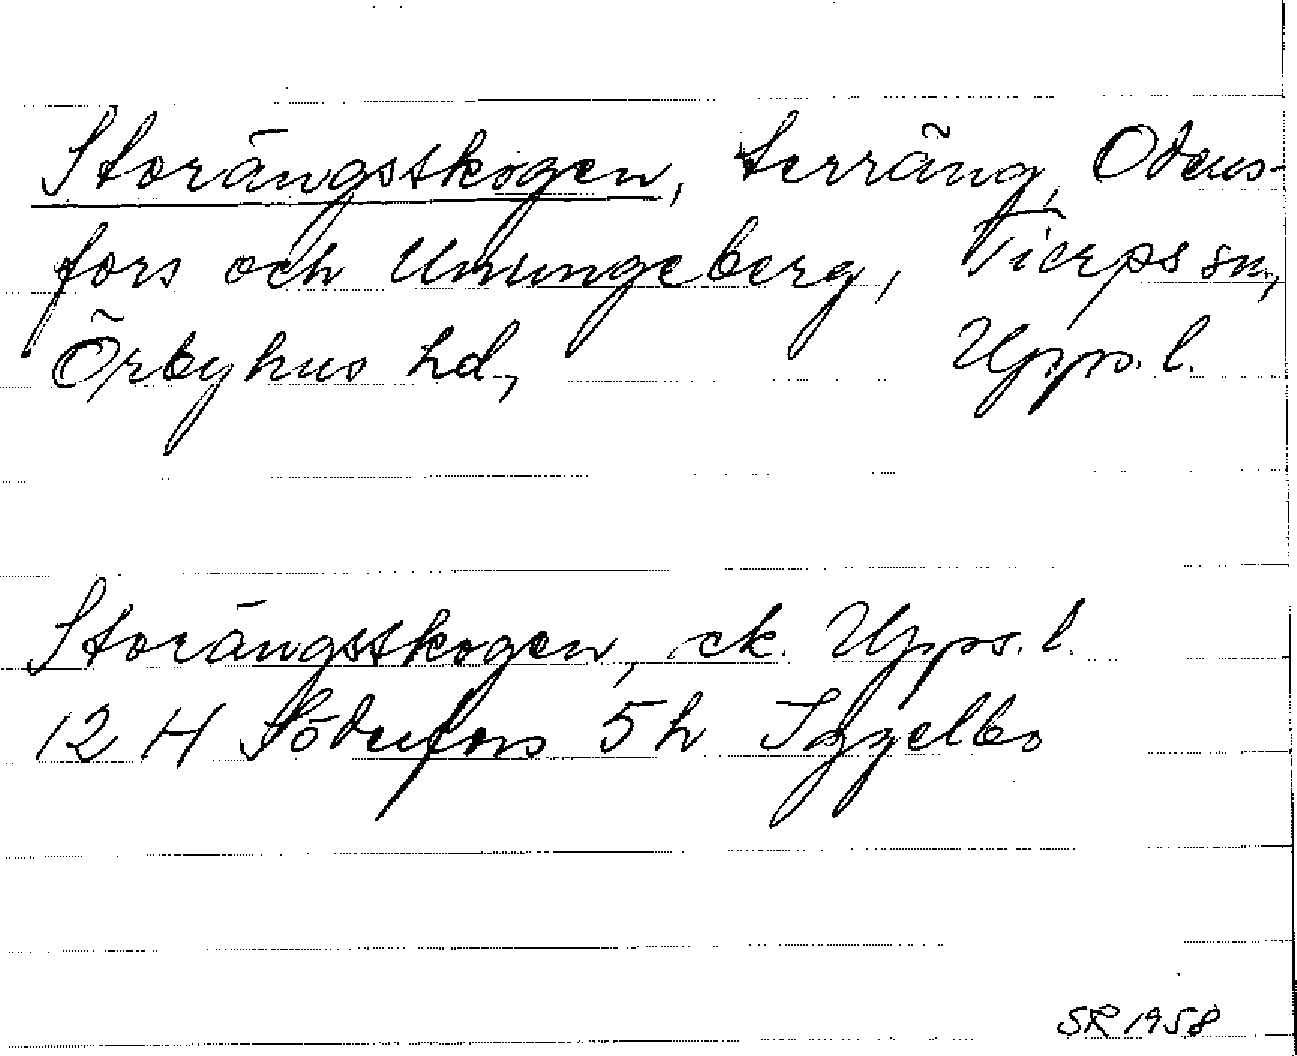 Storängsskogen, terräng, Odens-
fors och Unungeberg, Tierps sn,
Örbyhus hd, Upps. l.
Storängsskogen, ek. Upps. l.
12 H Söderfors 5h Iggelbo
SR 1958